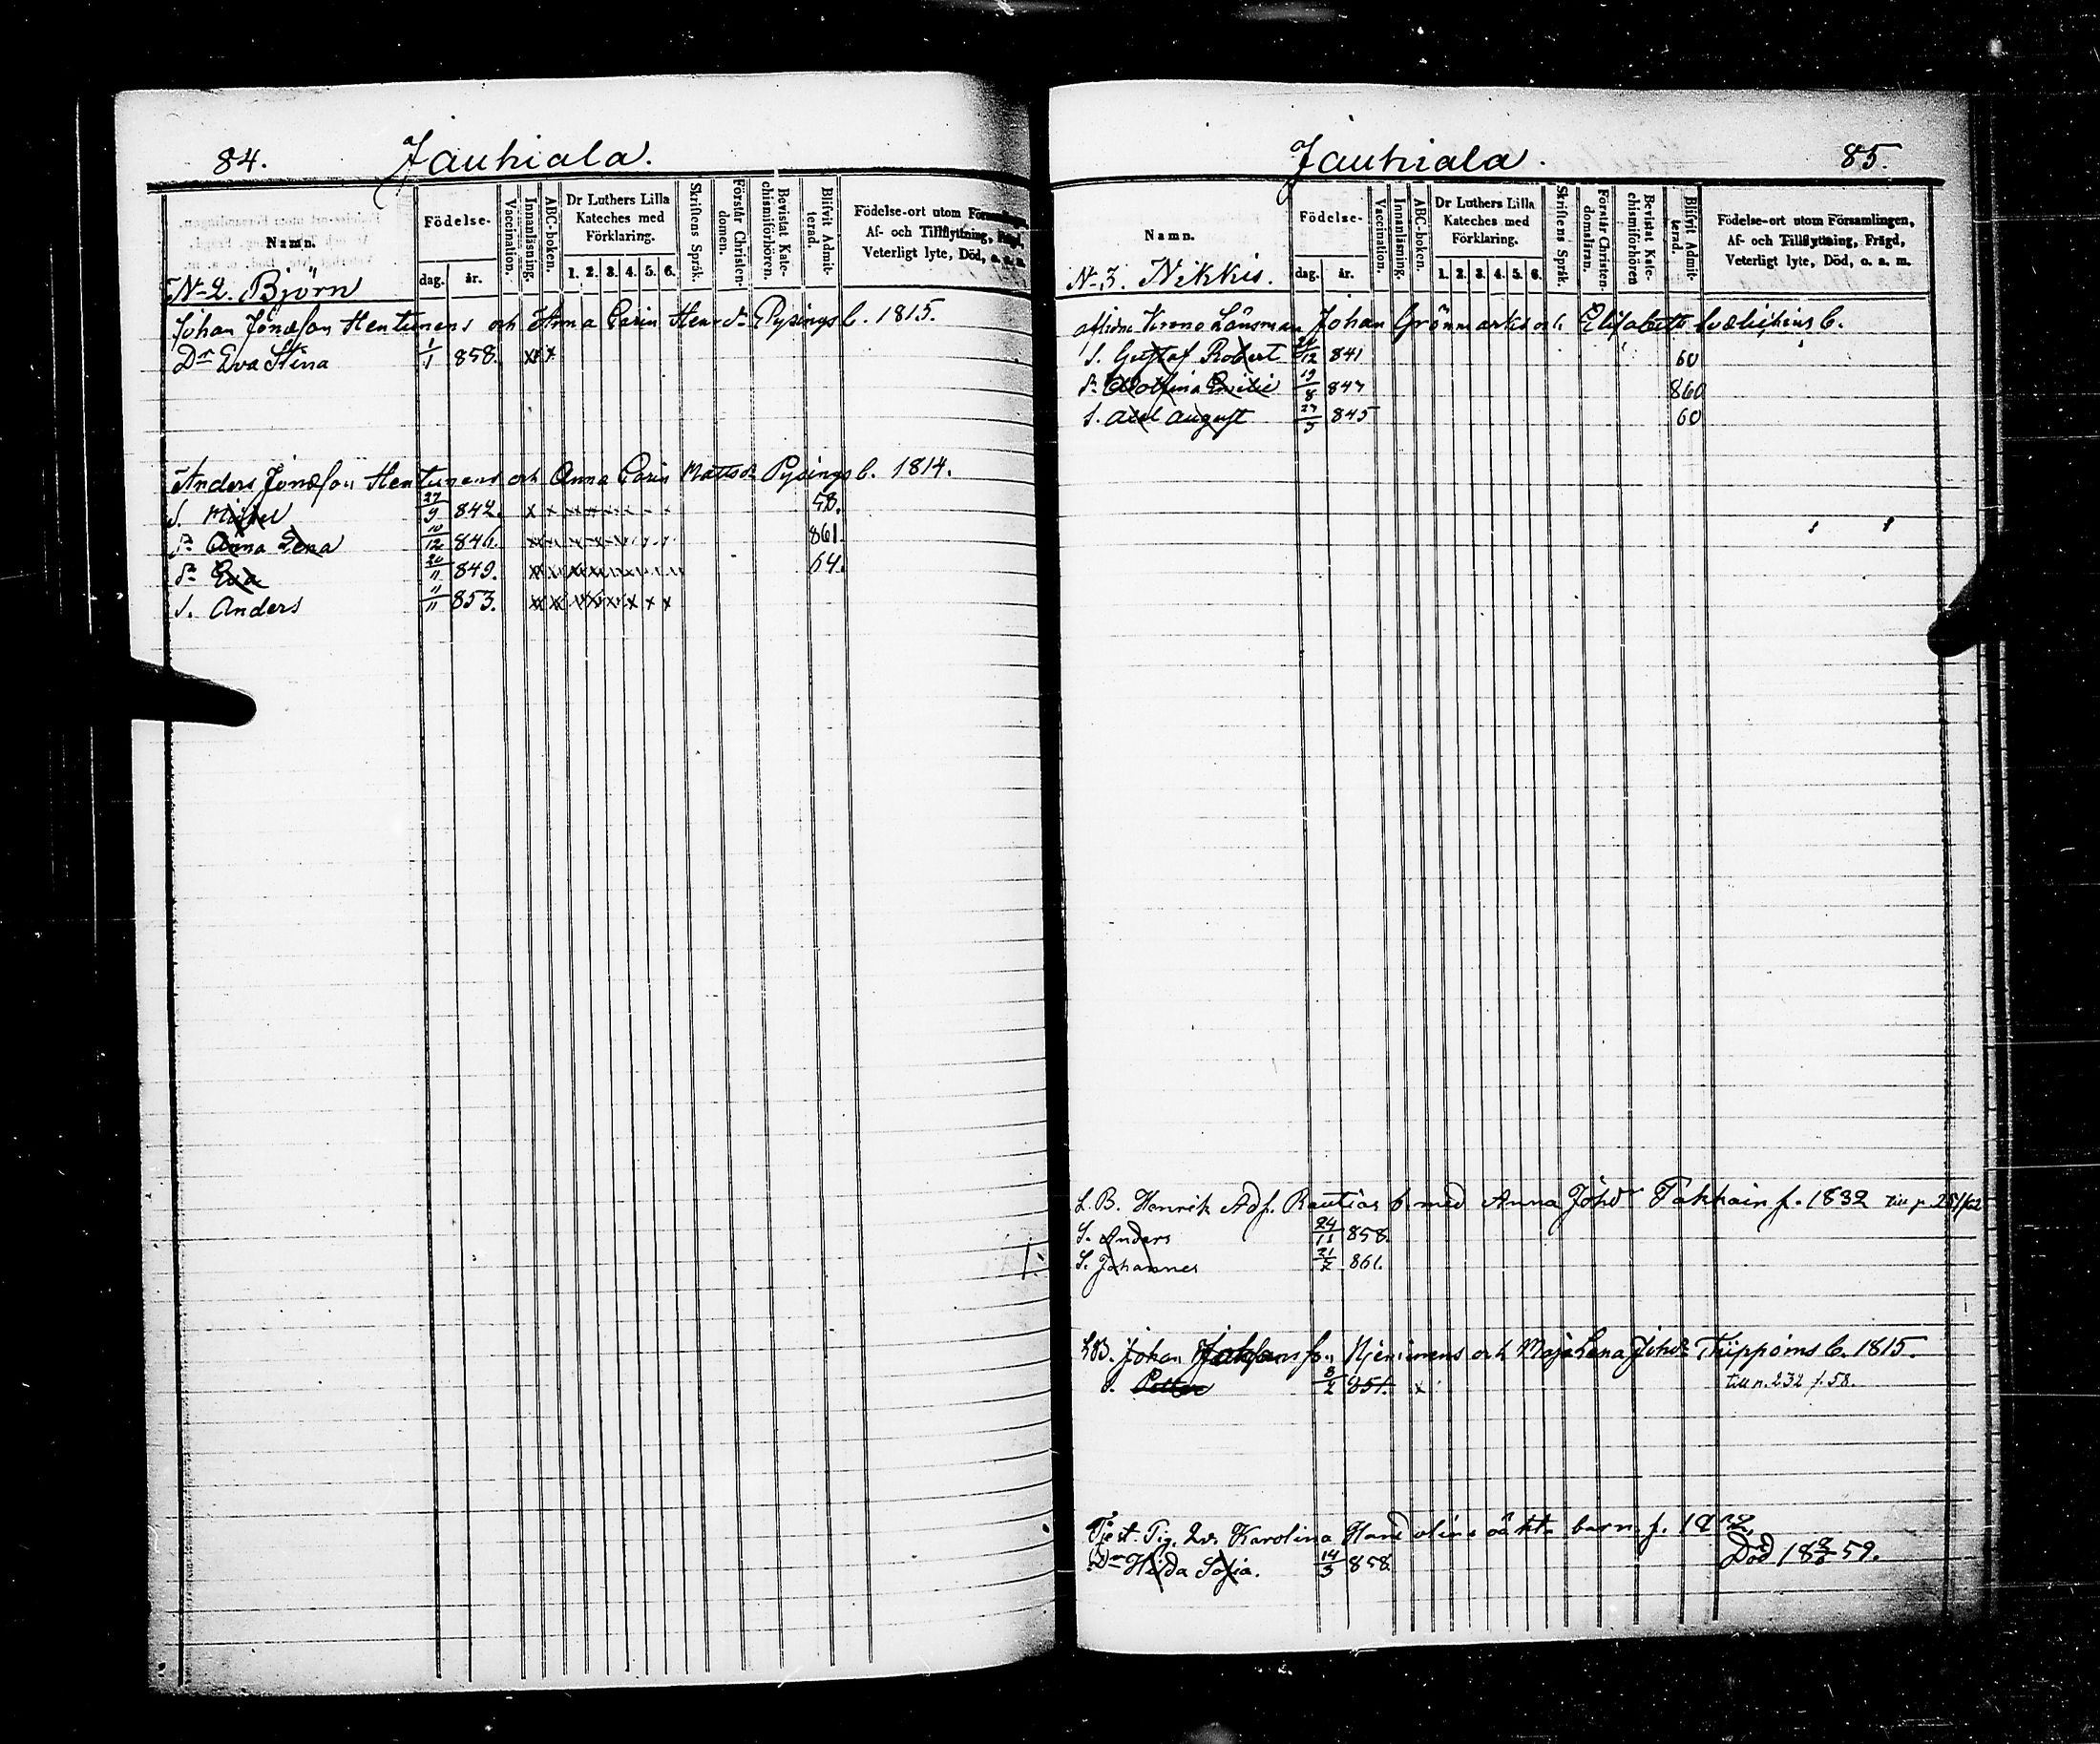 84. Jauhiala.
Namn.
Födelse-
dag. år.
Vaccination.
Innanläsning.
ABC-boken.
Dr Luthers Lilla Kateches med Förklaring.
1. 2. 3. 4. 5. 6.
Skriftens Språk.
Förstår Christendomen.
Bevistat Katechismiförhören.
Blifvit Admitterad.
Födelse-ort utom Församlingen,
Af- och Tillflyttning, Frägd,
Veterligt lyte, Död, o. a. m.
N-2. Björn
Johan Jonæson Hentunens och Anna Carin Henrdr Pysings b. 1815.
Dr Eva Stina 1/1 858. x x
Anders Jonæson Hentunens och Anna Carin Mattsdr Pysings b. 1814.
S. Mickel 27/9 842. x x x x x x x x 58.
Dr Anna Lena 10/12 846. 861.
Dr Eva 20/11 849. 64.
S. Anders 11/11 853.
Jauhiala. 85.
Namn.
Födelse-
dag. år.
Vaccination.
Innanläsning.
ABC-boken.
Dr Luthers Lilla Kateches med Förklaring.
1. 2. 3. 4. 5. 6.
Skriftens Språk.
Förstår Christendomsläran.
Bevistat Katechismiförhören
Blifvit Admitterad.
Födelse-ort utom Församlingen,
Af- och Tillflyttning, Frägd,
Veterligt lyte, Död, o. a. m.
N-3. Nikkis.
Krono Länsman Johan Grönmarks och Elisabeth b.
S. Gustaf Robert /12 841 60
Dr 19/8 847 860
S. Axel August 27/5 845 60
L.B. Henrik Adf. Rautias b. med Anna Johdr Takkain f. 1832 till p. 251/62
S. Anders 24/11 858.
1. S. Johannes 21/ 861.
LB. Johan och Maja Lena Johdr Trippoins b. 1815.
S. Petter 8/2 851. x till n. 232 /. 58.
Tjest. Pig. Karolina oäkta barn f.
Dr Hilda Sofia. 14/3 858 Död 18 59.